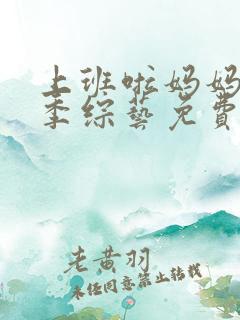 上班啦妈妈
季综艺免費
老黄羽
未经同意禁止转载